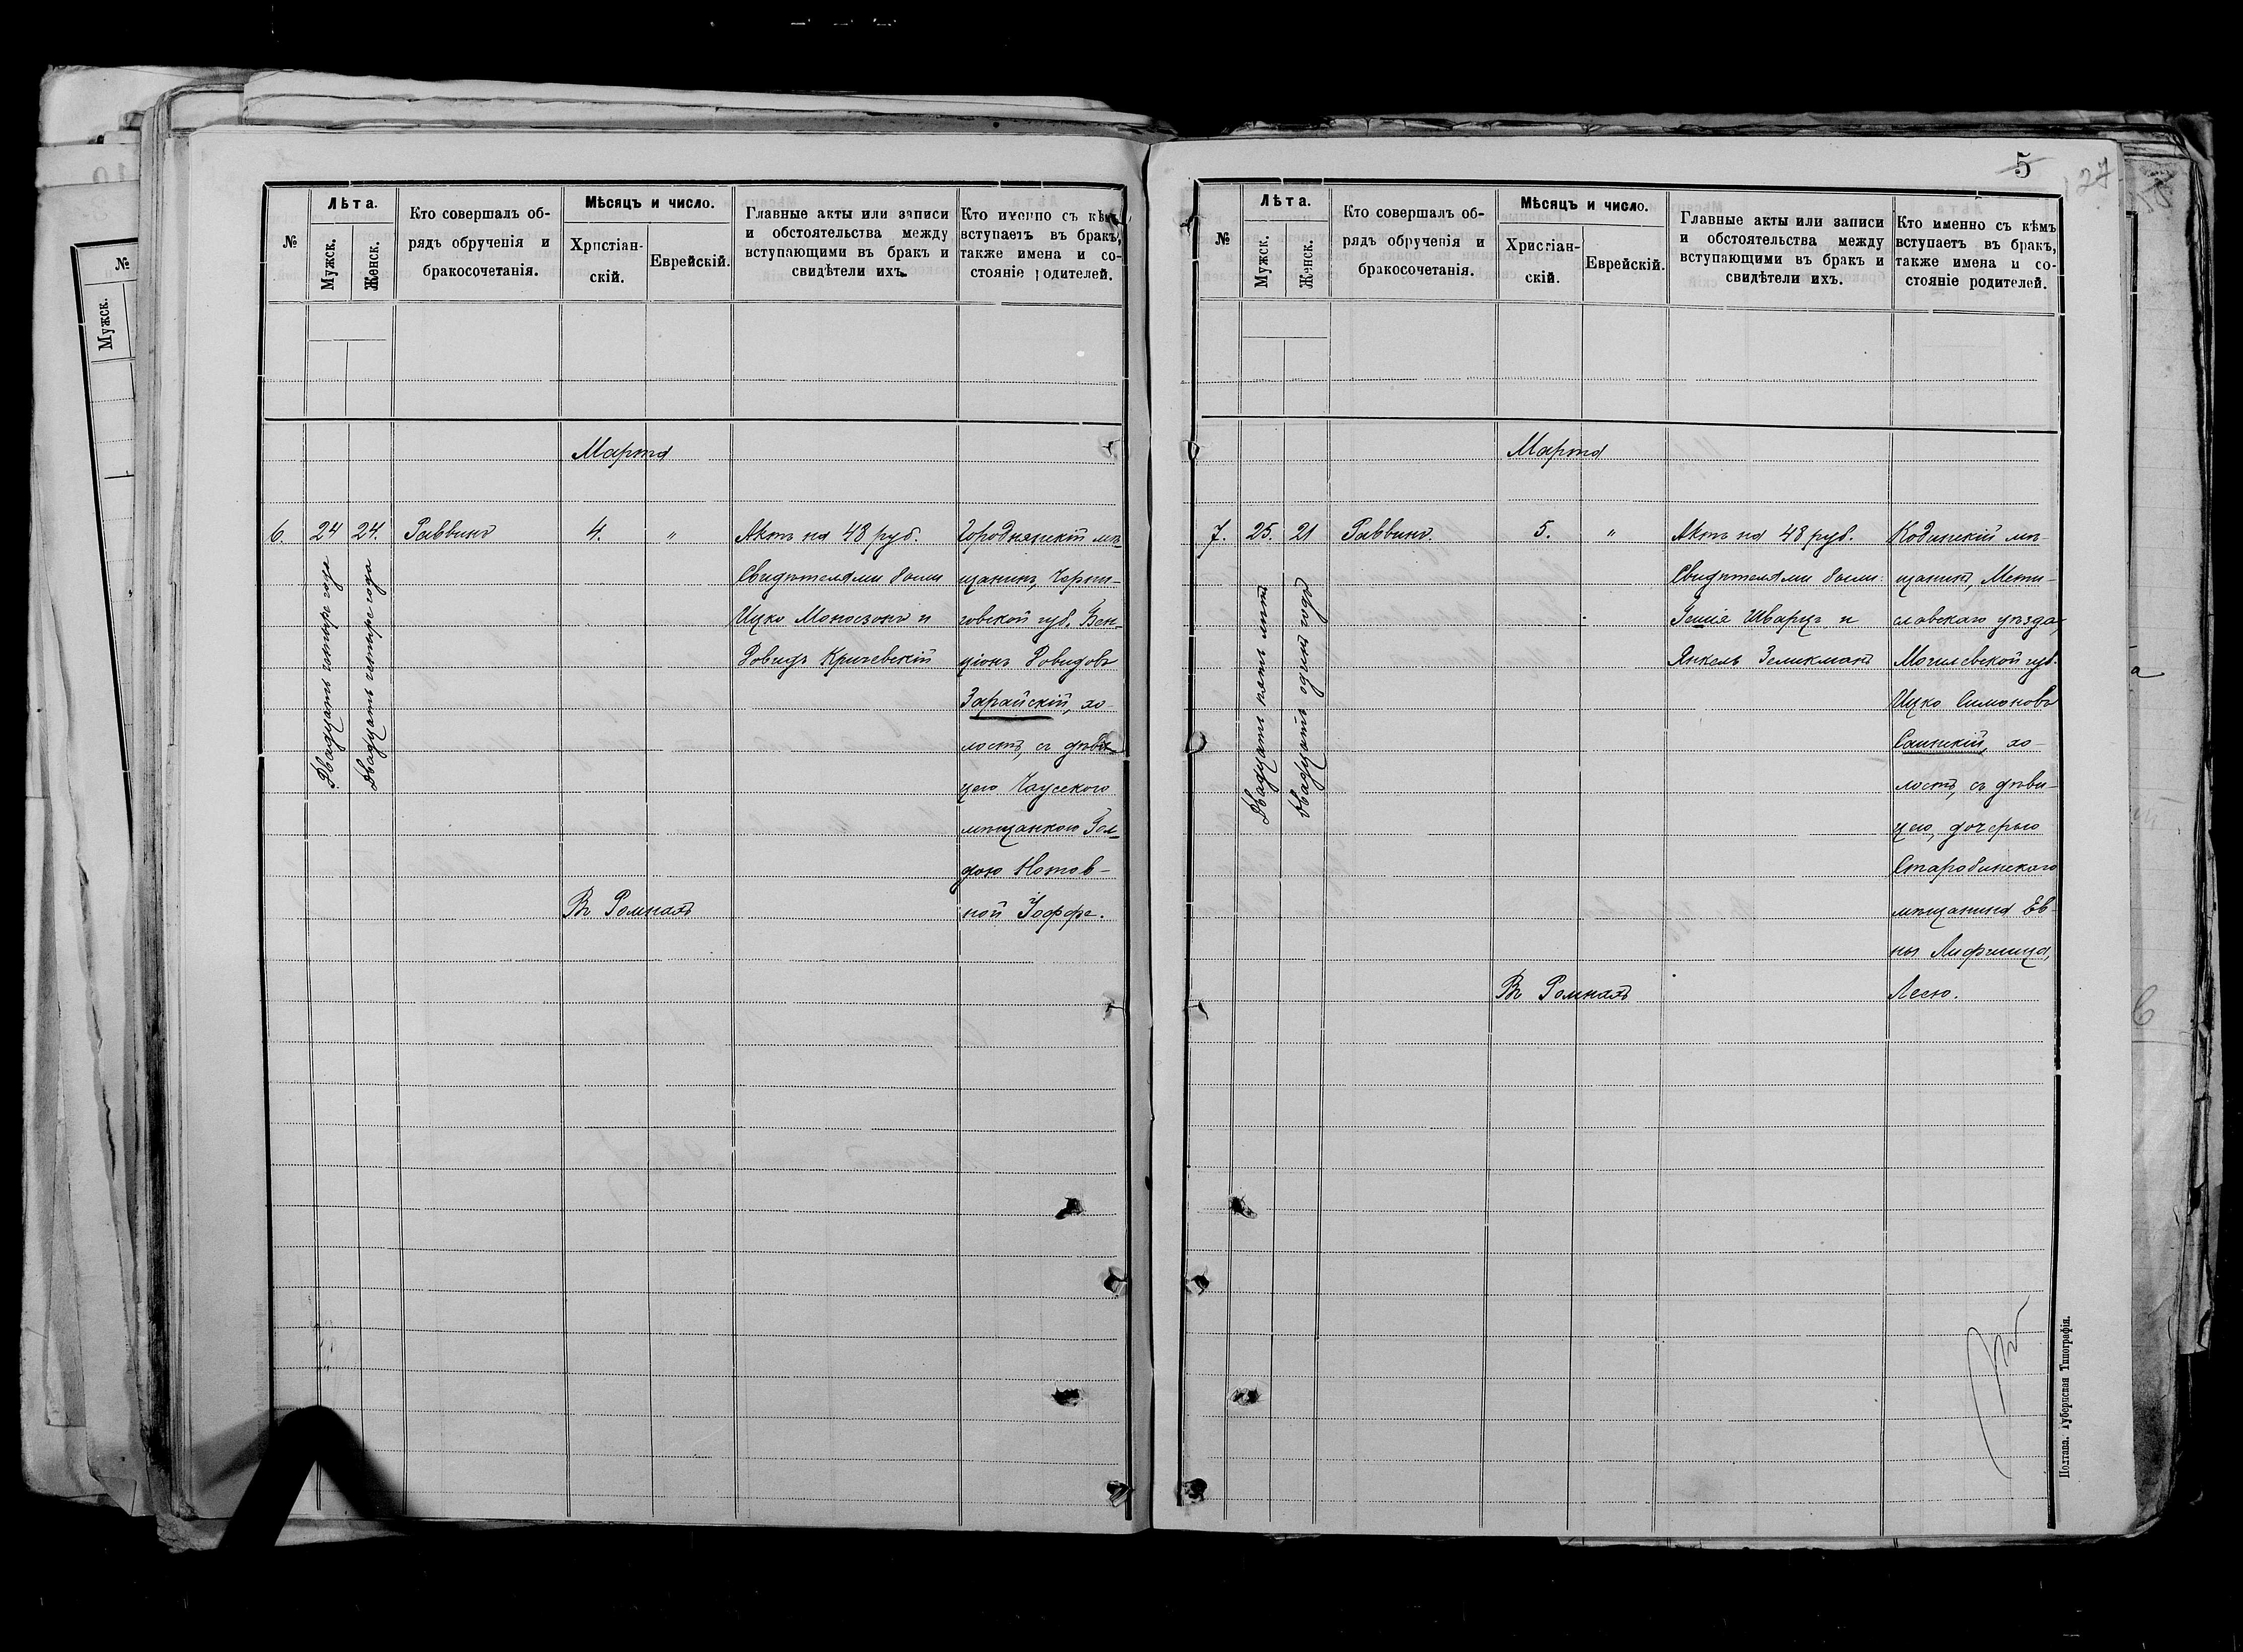 №
Лѣта.
Мужск.
Женск.
Кто совершалъ об-
рядъ обрученія и
бракосочетанія.
Мѣсяцъ и число.
Христіан-
скій.
Еврейскій.
Главные акты или записи
и обстоятельства между
вступающими въ бракъ и
свидѣтели ихъ.
Кто именно съ кѣмъ
вступаетъ въ бракъ,
также имена и со-
стояніе родителей.
Марта
6. 24 24. Раввинъ 4. „
Двадцать четыре года
Двадцать четыре года
Актъ на 48 руб.
Свидѣтелями были
Ицко Моносзонъ и
Довидъ Кричевскій
Городнянскій мѣ-
щанинъ, Черни-
говской губ. Бен-
ціонъ Довидовъ
Зарайскій, хо-
лостъ, съ дѣви-
цею Чаусскою
мѣщанкою Гол-
дою Нотов-
ной Іоффе.
Въ Ромнахъ
5
27
№
Лѣта.
Мужск.
Женск.
Кто совершалъ об-
рядъ обрученія и
бракосочетанія.
Мѣсяцъ и число.
Христіан-
скій.
Еврейскій.
Главные акты или записи
и обстоятельства между
вступающими въ бракъ и
свидѣтели ихъ.
Кто именно съ кѣмъ
вступаетъ въ бракъ,
также имена и со-
стояніе родителей.
Марта
7. 25. 21 Раввинъ. 5. „
Двадцать пять лѣтъ
Двадцать одинъ годъ
Актъ на 48 руб.
Свидѣтелями были:
Шварцъ и
Янкель Зеликманъ
Кодинскій мѣ-
щанинъ, Мсти-
славскаго уѣзда,
Могилевской губ.
Ицко Симоновъ
хо-
лостъ, съ дѣви-
цею, дочерью
Старобинскаго
мѣщанина Ев-
ны Лифшица,
Лесю.
Въ Ромнахъ
Полтава. Губернская Типографія.
№
Мужск.